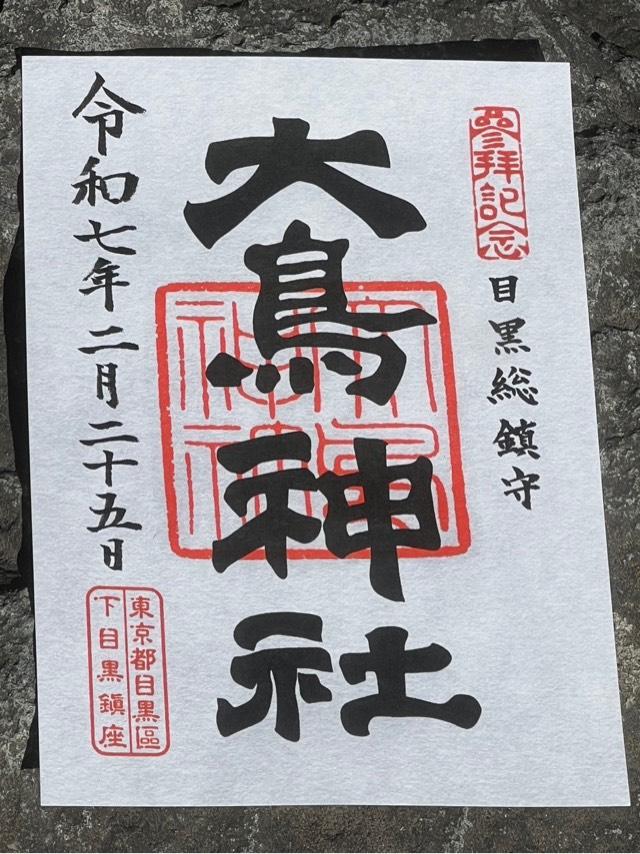 参拝記念
目黒総鎮守
大鳥神社
大鳥神社
令和七年二月二十五日
東京都目黒區
下目黒鎮座